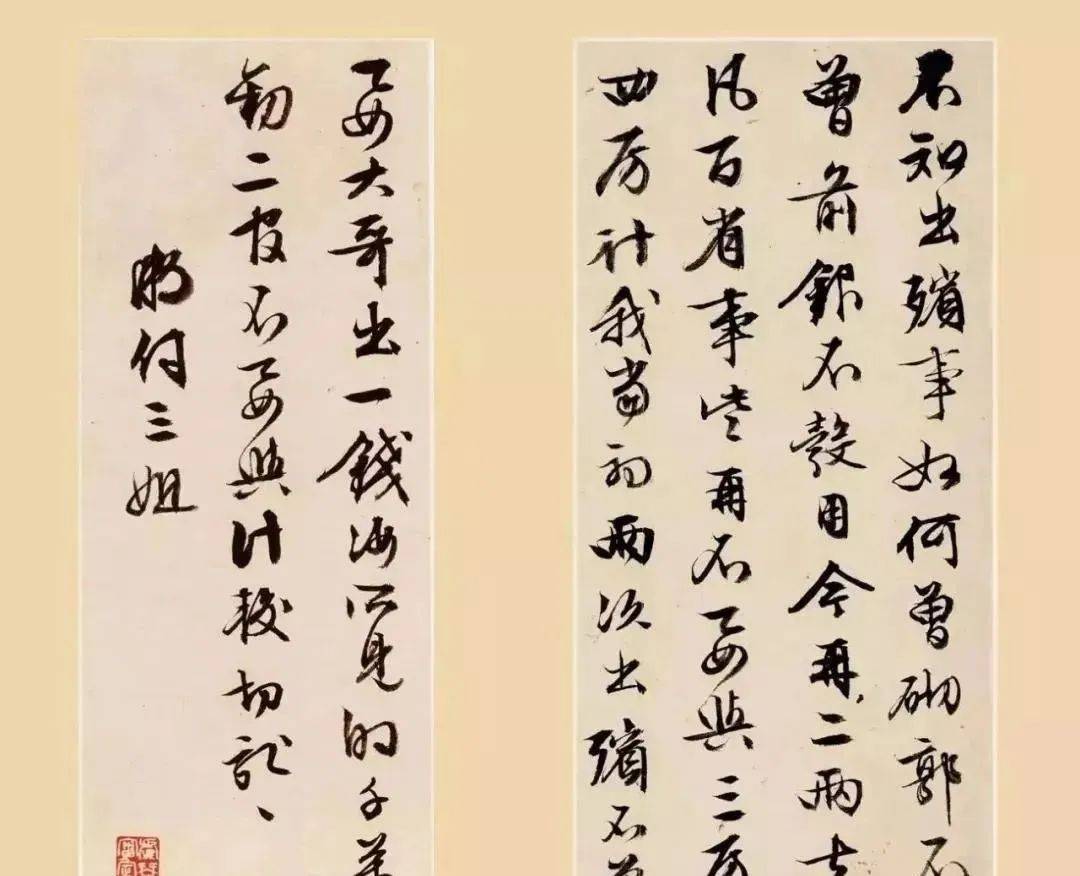 不知出殯事如何曾砌郭不
曾前銀不彀用今再二兩去
凡百省事些再不要與三房
四房計我當初兩次出殯不
要大哥出一錢汝所見的千萬
勸二官不要與計較切記、
明付三姐